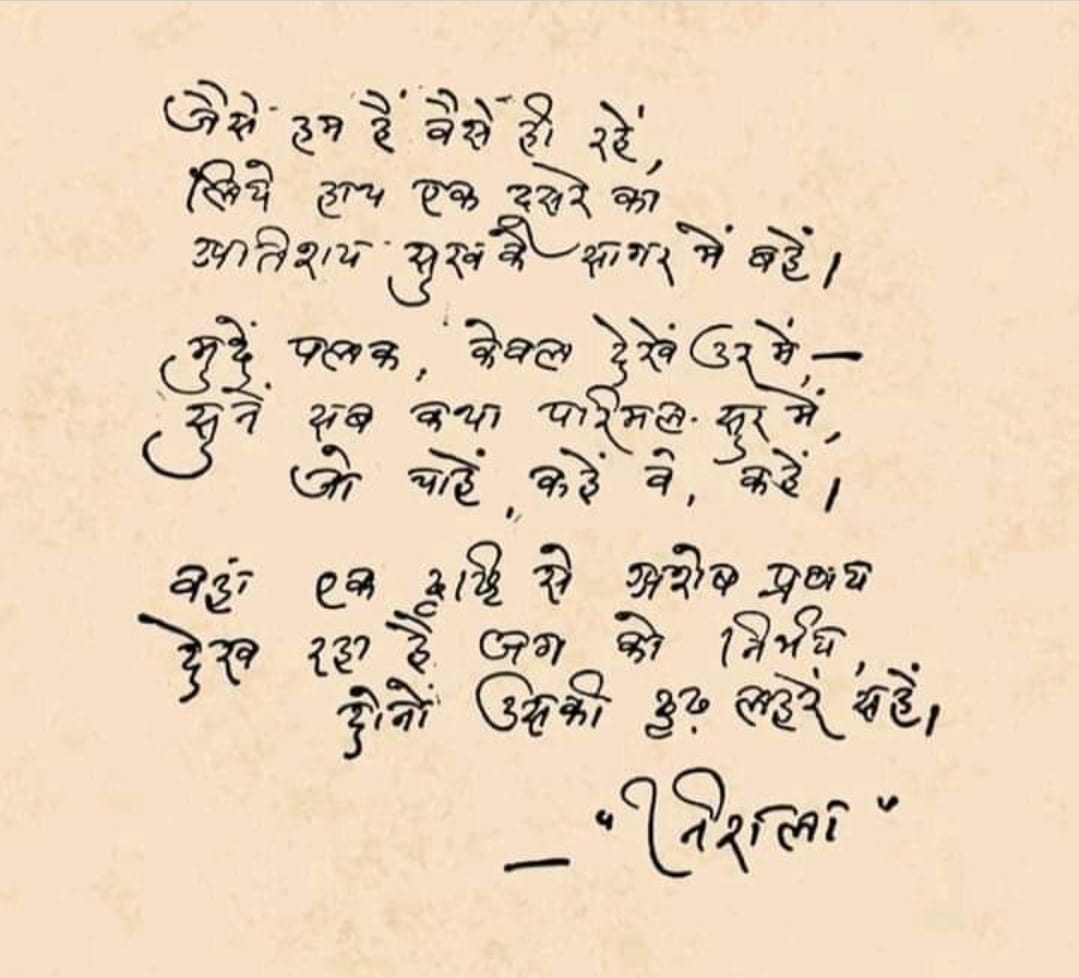 जैसे हम हैं वैसे ही रहें,
लिये हाथ एक दूसरे का
अतिशय सुख के सागर में बहें।
मुदें पलक, केवल देखें उर में,—
सुनें सब कथा परिमल-सुर में,
जो चाहें, कहें वे, कहें।
वहाँ एक दृष्टि से अशेष प्रणय
देख रहा है जग को निर्भय,
दोनों उसकी दृढ़ लहरें सहें।
— "निराला"